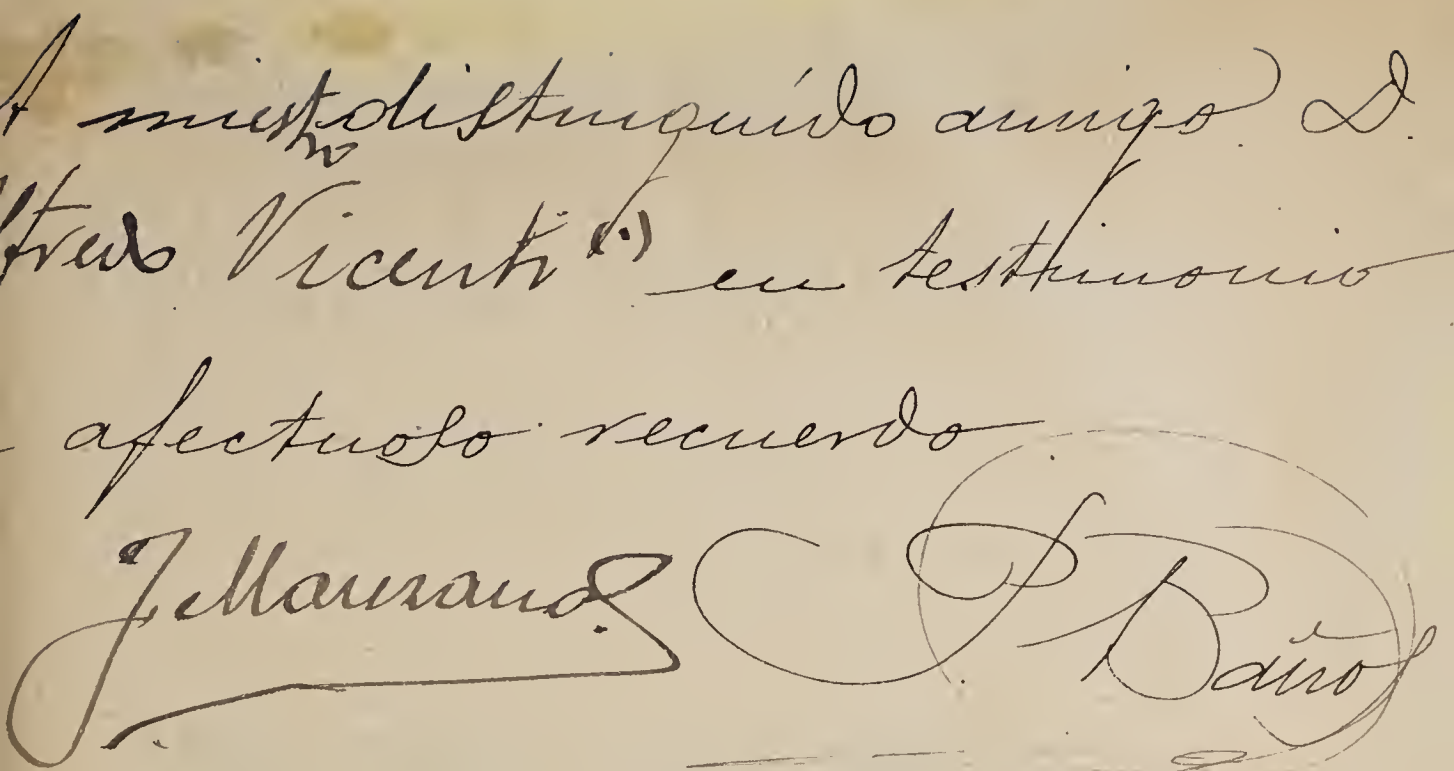 A nuestro distinguido amigo D.
Alfredo Vicenti (.) en testimonio
afectuoso recuerdo
J. Manzano P Baños